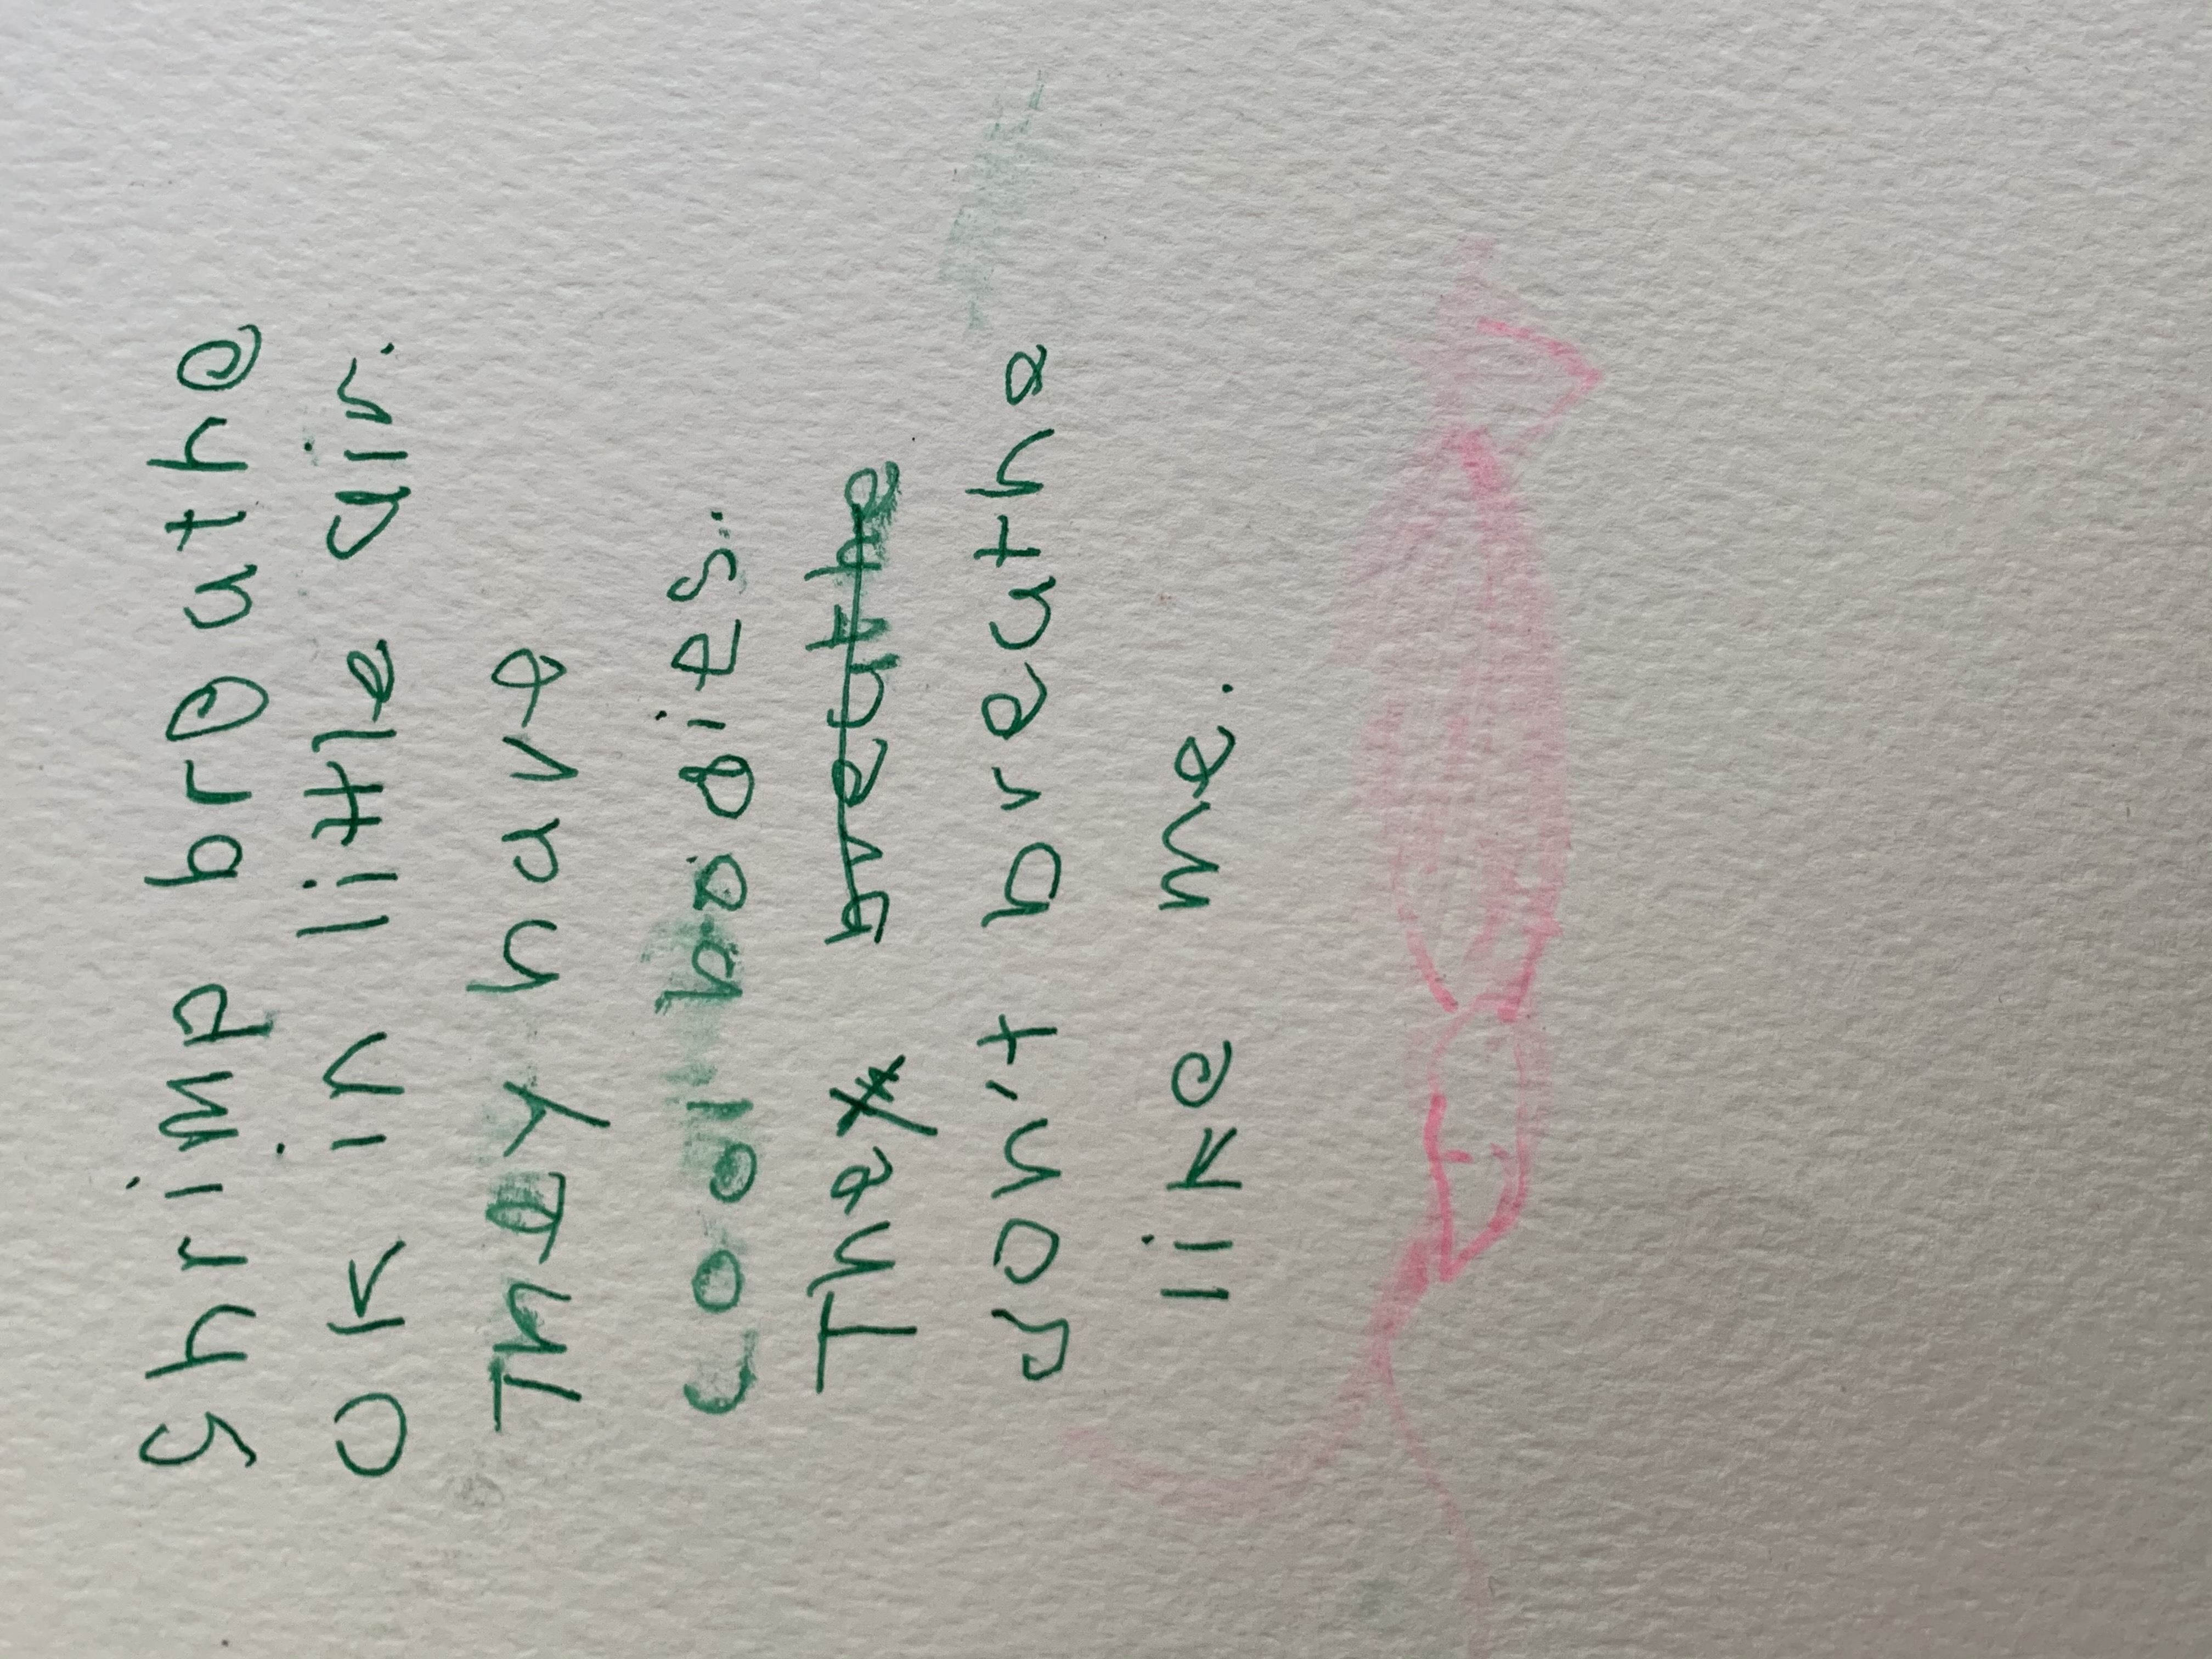 Shrimp breathe
OK in little air.
They have
cool bodies.
They breathe
don't breathe
like me.